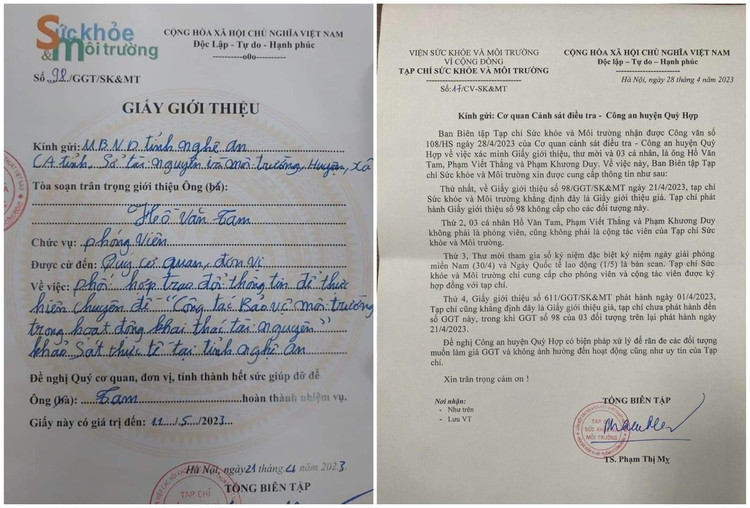 Sức khỏe
& Môi trường
CỘNG HÒA XÃ HỘI CHỦ NGHĨA VIỆT NAM
Độc Lập - Tự do - Hạnh phúc
---------o0o---------
Số 98/GGT/SK&MT
GIẤY GIỚI THIỆU
Kính gửi: U.B.N.D. tỉnh nghệ an
CA tỉnh, Sở tài nguyên và môi trường, Huyện, Xã
Tòa soạn trân trọng giới thiệu Ông (bà):
Hồ Văn Tam
Chức vụ: phóng Viên
Được cử đến: Quý cơ quan, đơn vị
Về việc: phối hợp trao đổi thông tin để thực
hiện chuyên đề "Công tác Bảo vệ môi trường
trong hoạt động khai thác tài nguyên"
khảo Sát thực tế tại tỉnh nghệ An
Đề nghị Quý cơ quan, đơn vị, tỉnh thành hết sức giúp đỡ để
Ông (bà): Tam hoàn thành nhiệm vụ.
Giấy này có giá trị đến: 11/5/2023
Hà Nội, ngày 21 tháng 4 năm 2023
TỔNG BIÊN TẬP
TẠP CHÍ
VIỆN SỨC KHỎE VÀ MÔI TRƯỜNG
VÌ CỘNG ĐỒNG
TẠP CHÍ SỨC KHỎE VÀ MÔI TRƯỜNG
Số:17/CV-SK&MT
CỘNG HÒA XÃ HỘI CHỦ NGHĨA VIỆT NAM
Độc lập - Tự do - Hạnh phúc
Hà Nội, ngày 28 tháng 4 năm 2023
Kính gửi: Cơ quan Cảnh sát điều tra - Công an huyện Quỳ Hợp
Ban Biên tập Tạp chí Sức khỏe và Môi trường nhận được Công văn số
108/HS ngày 28/4/2023 của Cơ quan cảnh sát điều tra - Công an huyện Quỳ
Hợp về việc xác minh Giấy giới thiệu, thư mời và 03 cá nhân, là ông Hồ Văn
Tam, Phạm Viết Thắng và Phạm Khương Duy. Về việc này, Ban Biên tập Tạp
chí Sức khỏe và Môi trường xin được cung cấp thông tin như sau:
Thứ nhất, về Giấy giới thiệu số 98/GGT/SK&MT ngày 21/4/2023, tạp chí
Sức khỏe và Môi trường khẳng định đây là Giấy giới thiệu giả. Tạp chí phát
hành Giấy giới thiệu số 98 không cấp cho các đối tượng này.
Thứ 2, 03 cá nhân Hồ Văn Tam, Phạm Viết Thắng và Phạm Khương Duy
không phải là phóng viên, cũng không phải là cộng tác viên của Tạp chí Sức
khỏe và Môi trường.
Thứ 3, Thư mời tham gia số kỷ niệm đặc biệt kỷ niệm ngày giải phóng
miền Nam (30/4) và Ngày Quốc tế lao động (1/5) là bản scan. Tạp chí Sức
khỏe và Môi trường chỉ cung cấp cho phóng viên và cộng tác viên được ký
hợp đồng với tạp chí.
Thứ 4, Giấy giới thiệu số 611/GGT/SK&MT phát hành ngày 01/4/2023,
Tạp chí cũng khẳng định đây là Giấy giới thiệu giả, tạp chí chưa phát hành đến
số GGT này, trong khi GGT số 98 của 03 đối tượng trên lại phát hành ngày
21/4/2023.
Đề nghị Công an huyện Quỳ Hợp có biện pháp xử lý để răn đe các đối tượng
muốn làm giả GGT và không ảnh hưởng đến hoạt động cũng như uy tín của Tạp
chí.
Xin trân trọng cảm ơn !
Nơi nhận:
- Như trên
- Lưu VT
TỔNG BIÊN TẬP
TẠP CHÍ
SỨC KHỎE
MÔI TRƯỜNG
TS. Phạm Thị Mỵ